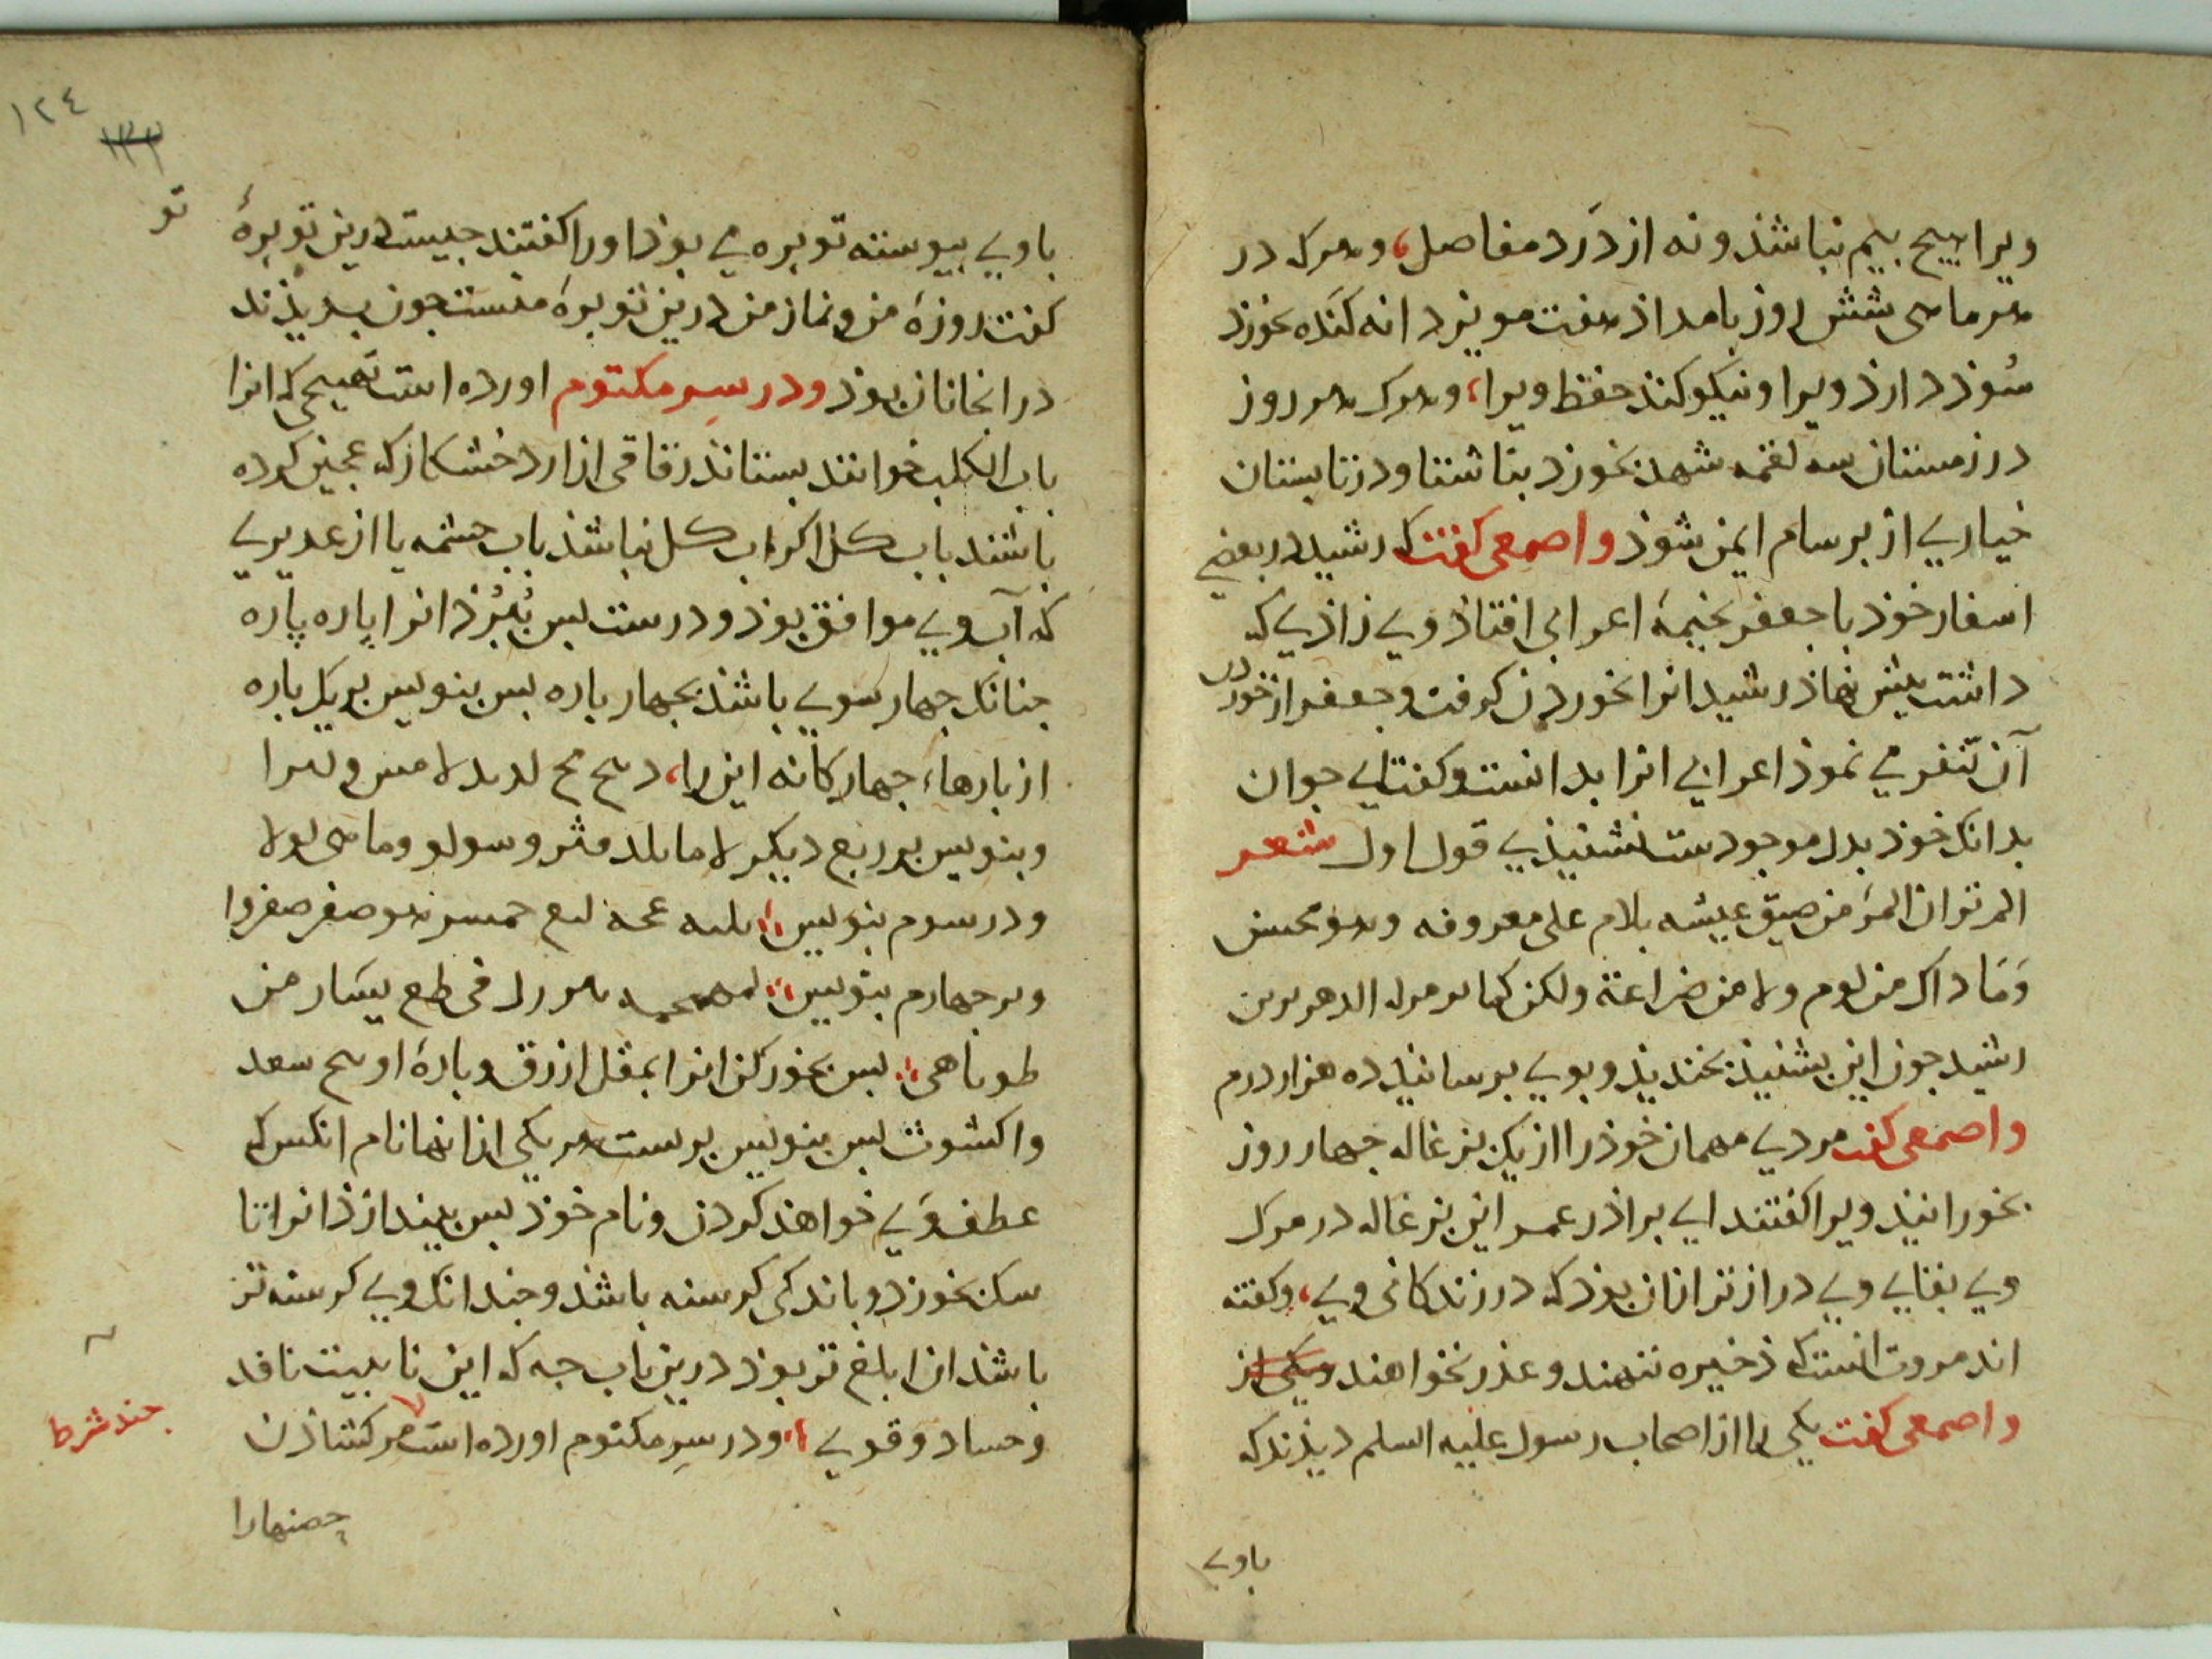 ویرا هیچ بیم نباشذ و نه از دَرد مفاصل، و هرک در
هر ماهی شش روز بامداذ هفت مویز دانه کنده بخورد
سُوذ دارذ ویرا و نیکو کنذ حفظ ویرا، و هرک هر روز
در زمستان سه لقمه شهد بخورد بناشتا و در تابستان
خیاری از برسام ایمن شوذ واصمعی کفت که رشید در بعضی
اسفار خوذ با جعفر بخیمهٔ اعرابی افتاذ وی زاذی که
داشت پیش نهاذ رشید انرا بخوردن کرفت وجعفر از خوردن
آن تنفر می نموذ اعرابی انرا بدانست و کفت ای جوان
بدانک خوذ بدل موجودست نشنیذی قول اول شعر
الم تر ان المرء من ضیق عیشه یلام علی معروفه وهو محسن
وَمَا داک من لوم ولا من ضراعة ولکن کما
رشید جون این بشنیذ بخندیذ و بوی برسانیذ ده هزار درم
واصمعی کفت مردی مهمان خوذ را از یک بزغاله جهار روز
بخورانید ویرا کفتند ای براذر عمر این بزغاله در مرک
وی بقای وی درازتر ازان بوذ که در زندکانی وی، وکفته
اند مروت انست که ذخیره ننهند و عذر نخواهند
واصمعی کفت یکی را از اصحاب رسول علیه السلم دیذند که
باوی
١٢٤
١٢٣
تو
باوی پیوسته توبره می بوذ اورا کفتند جیست درین توبرهٔ
کفت روزهٔ من ونماز من درین توبرهٔ منست جون بدیذند
در انجا نان بوذ ودر سر مکتوم اورده است تهییجی که انرا
باب الکلب خوانند بستانذ رقاقی از ارد خشکار که عجین کرده
باشند باب کل اکر اب کل نباشذ باب جشمه یا از غدیری
که آب وی موافق بوذ و درست بس بُبُرذ انرا پاره پاره
جنانک جهار سوی باشذ بجهار باره بس بنویس بر یک باره
از بارها، جهارکانه این را،
وبنویس بر ربع دیکر
و در سوم بنویس
وبر جهارم بنویس فی طع یسَار من
بس بخور کن انرا بمقل ازرق و بارهٔ
واکشوث بس بنویس برست هر یکی ازانها نام انکس که
عطف وَی خواهند کردن و نام خوذ بس بیندازذ انرا تا
سک بخورد و باندکی کرسنه باشذ وجندانک وی کرسنه تر
باشذ ان ابلغ تر بوذ درین باب جه که این نابیست نافد
وحساد وقوی و در سر مکتوم اورده است مر کشاذن
جند شرط
حصنهارا